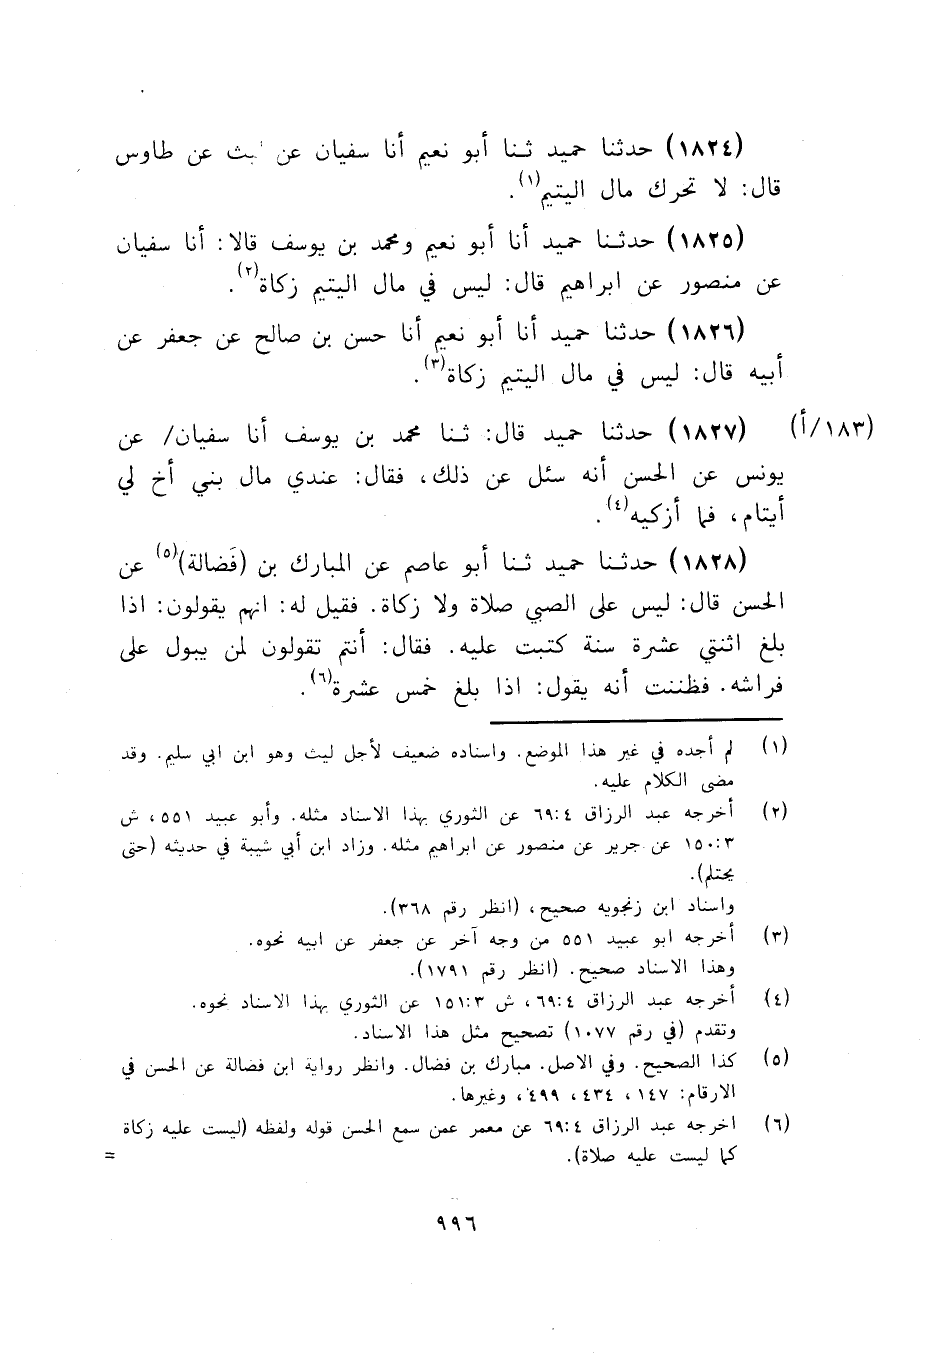 (١٨٢٤) حدثنا حميد ثنا أبو نعيم أنا سفيان عن ليث عن طاوس
قال: لا تحرك مال اليتيم(١).
(١٨٢٥) حدثنا حميد أنا أبو نعيم ومحمد بن يوسف قالا: أنا سفيان
عن منصور عن ابراهيم قال: ليس في مال اليتيم زكاة(٢).
(١٨٢٦) حدثنا حميد أنا أبو نعيم أنا حسن بن صالح عن جعفر عن
أبيه قال: ليس في مال اليتيم زكاة(٣).
(١٨٣/أ) (١٨٢٧) حدثنا حميد قال: ثنا محمد بن يوسف أنا سفيان/ عن
يونس عن الحسن أنه سئل عن ذلك، فقال: عندي مال بني أخ لي
أيتام، فما أزكيه(٤).
(١٨٢٨) حدثنا حميد ثنا أبو عاصم عن المبارك بن (فَضالة)(٥) عن
الحسن قال: ليس على الصبي صلاة ولا زكاة. فقيل له: انهم يقولون: اذا
بلغ اثنتي عشرة سنة كتبت عليه. فقال: أنتم تقولون لمن يبول على
فراشه. فظننت أنه يقول: اذا بلغ خمس عشرة(٦).
(١) لم أجده في غير هذا الموضع. واسناده ضعيف لأجل ليث وهو ابن ابي سليم. وقد
مضى الكلام عليه.
(٢) أخرجه عبد الرزاق ٦٩:٤ عن الثوري بهذا الاسناد مثله. وأبو عبيد ٥٥١، ش
١٥٠:٣ عن جرير عن منصور عن ابراهيم مثله. وزاد ابن أبي شيبة في حديثه (حتى
يحتلم).
واسناد ابن زنجويه صحيح، (انظر رقم ٣٦٨).
(٣) أخرجه ابو عبيد ٥٥١ من وجه آخر عن جعفر عن ابيه نحوه.
وهذا الاسناد صحيح. (انظر رقم ١٧٩١).
(٤) أخرجه عبد الرزاق ٦٩:٤، ش ١٥١:٣ عن الثوري بهذا الاسناد نحوه.
وتقدم (في رقم ١٠٧٧) تصحيح مثل هذا الاسناد.
(٥) كذا الصحيح. وفي الاصل. مبارك بن فضال. وانظر رواية ابن فضالة عن الحسن في
الارقام: ١٤٧، ٤٣٤، ٤٩٩، وغيرها.
(٦) اخرجه عبد الرزاق ٦٩:٤ عن معمر عمن سمع الحسن قوله ولفظه (ليست عليه زكاة
كما ليست عليه صلاة). =
٩٩٦